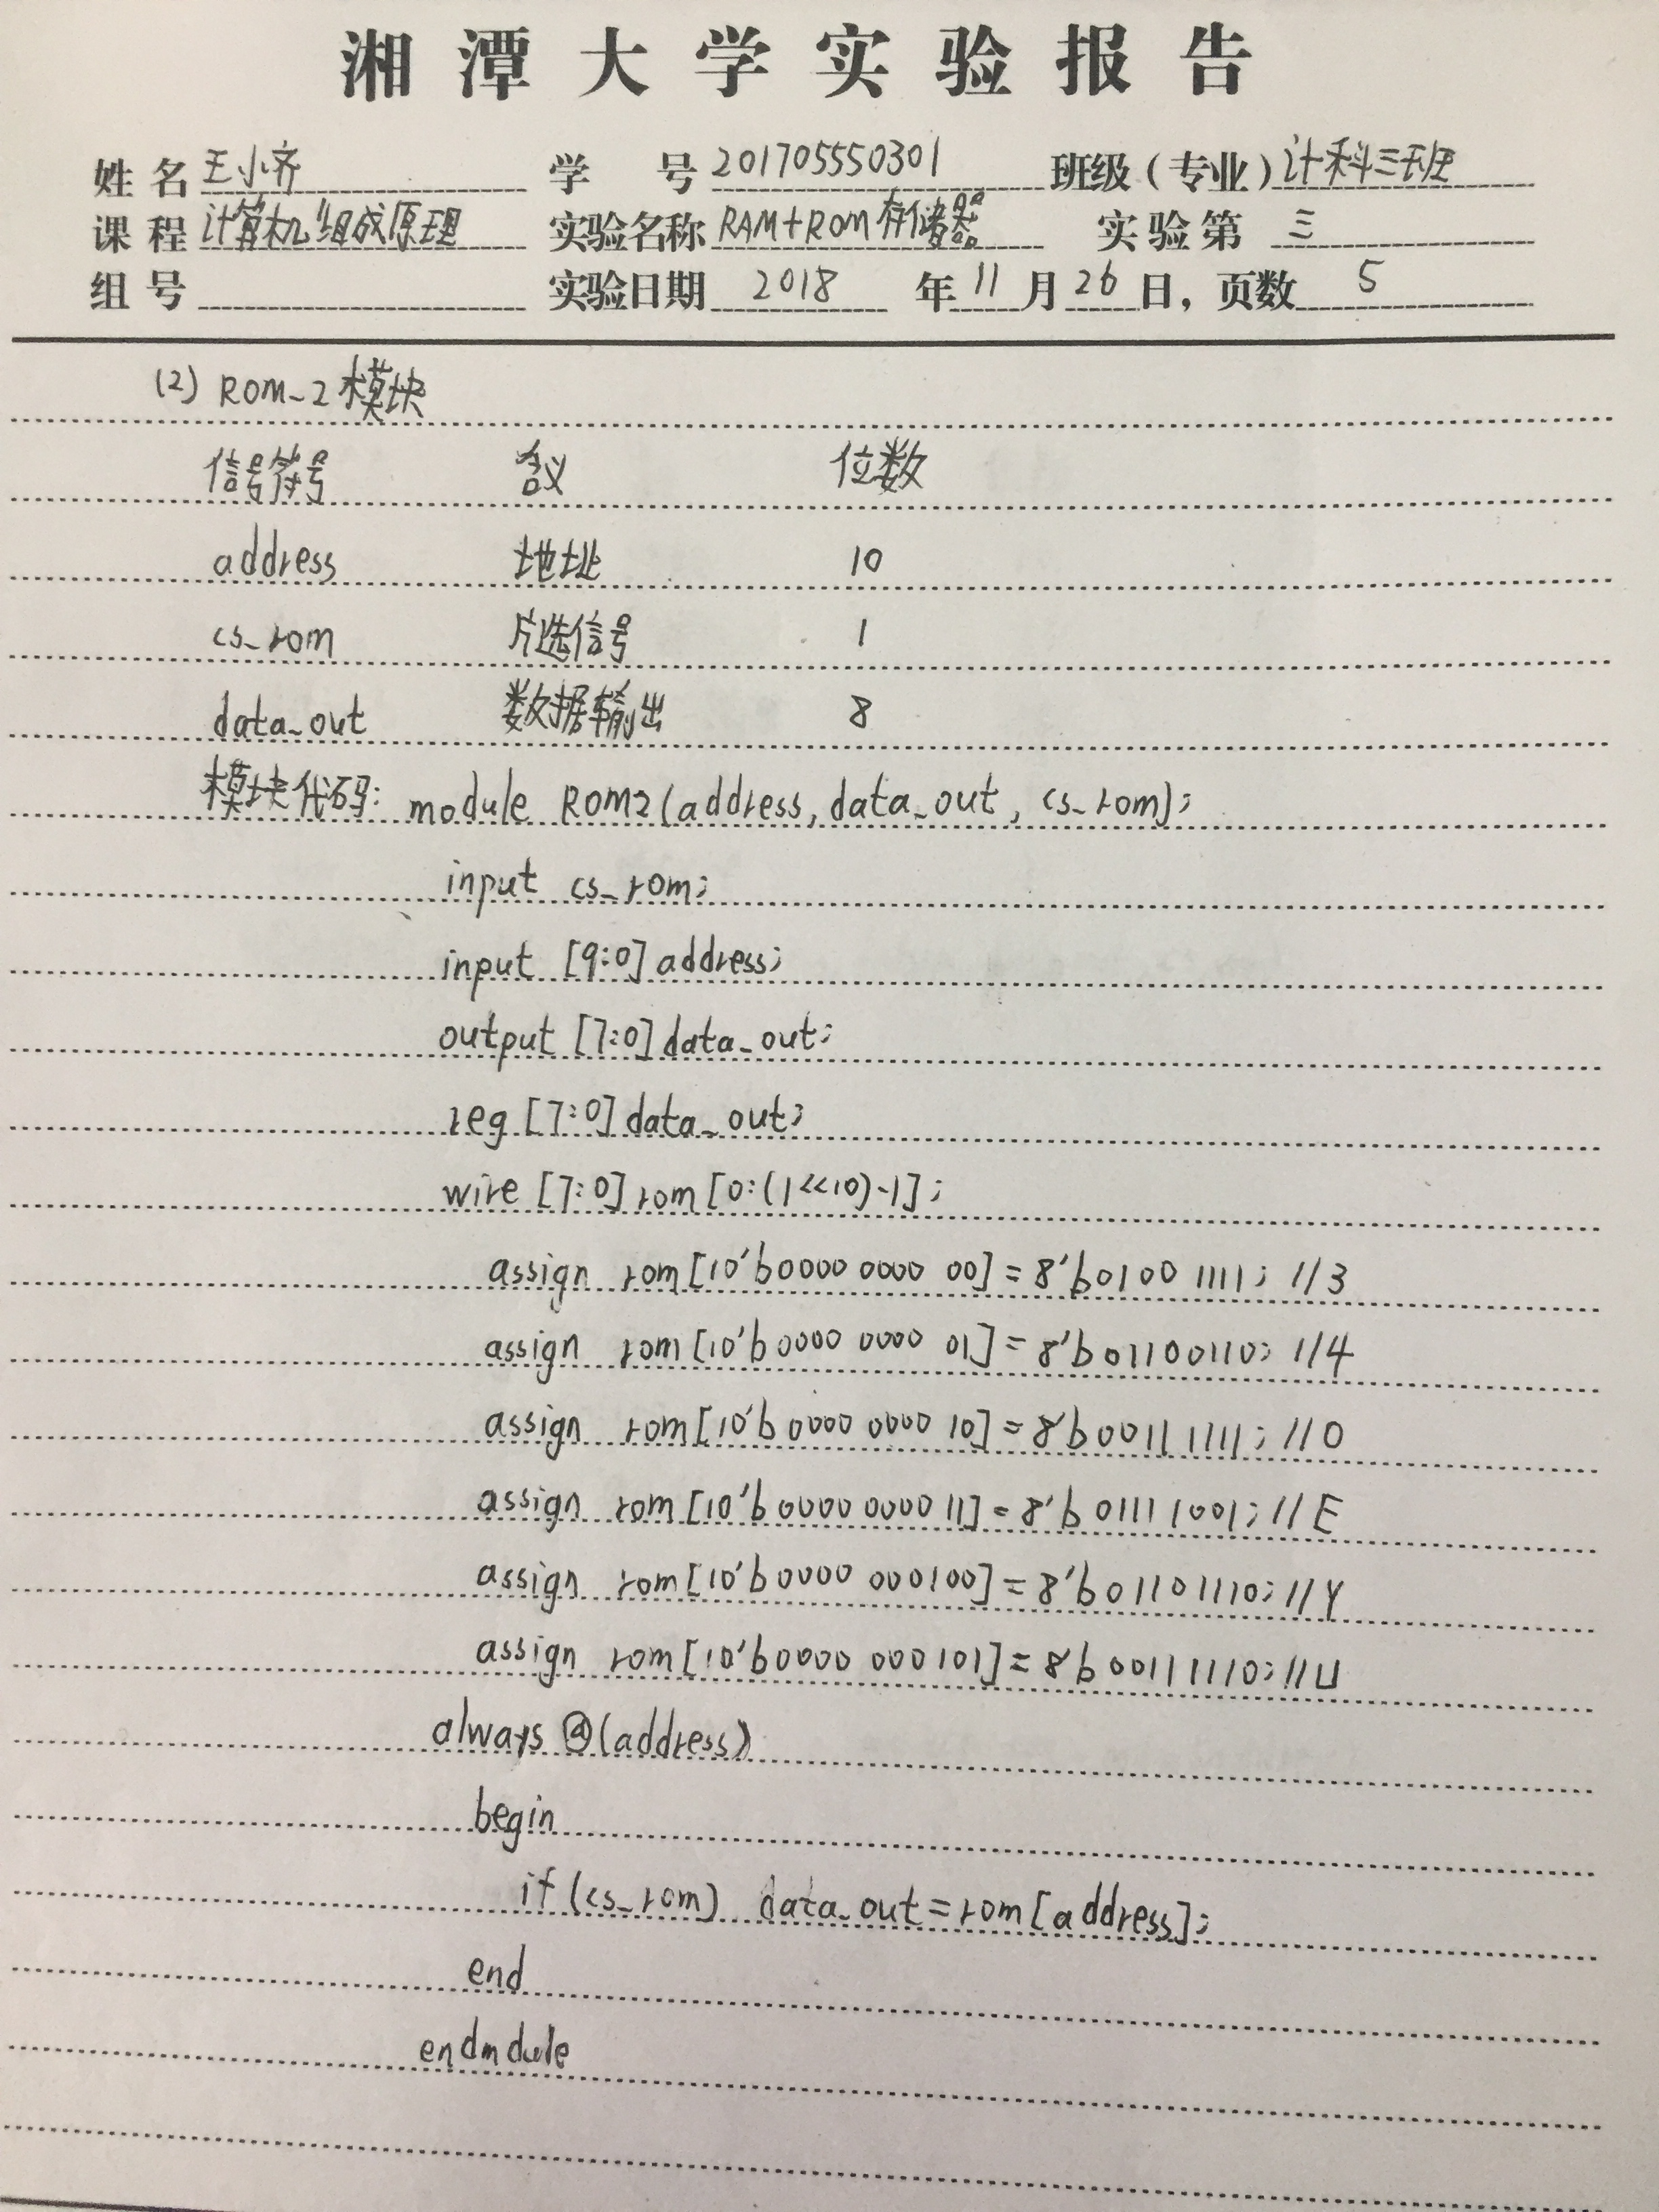 湘潭大学实验报告
姓名 王小齐 学号 201705550301 班级（专业）计科三班
课程 计算机组成原理 实验名称 RAM+ROM存储器 实验第 三
组号 实验日期 2018 年 11 月 26 日，页数 5
(2) ROM_2模块
信号符号 含义 位数
address 地址 10
cs_rom 片选信号 1
data_out 数据输出 8
模块代码: module ROM2(address,data_out,cs_rom);
input cs_rom;
input [9:0] address;
output [7:0] data_out;
reg [7:0] data_out;
wire [7:0] rom[0:(1<<10)-1];
assign rom[10'b0000 0000 00]=8'b0100 1111; //3
assign rom[10'b0000 0000 01]=8'b01100110; //4
assign rom[10'b0000 0000 10]=8'b0011 1111; //0
assign rom[10'b0000 0000 11]=8'b0111 1001; //E
assign rom[10'b0000 000100]=8'b01101110; //Y
assign rom[10'b0000 000101]=8'b00111110; //U
always @(address)
begin
if(cs_rom) data_out=rom[address];
end
endmdule